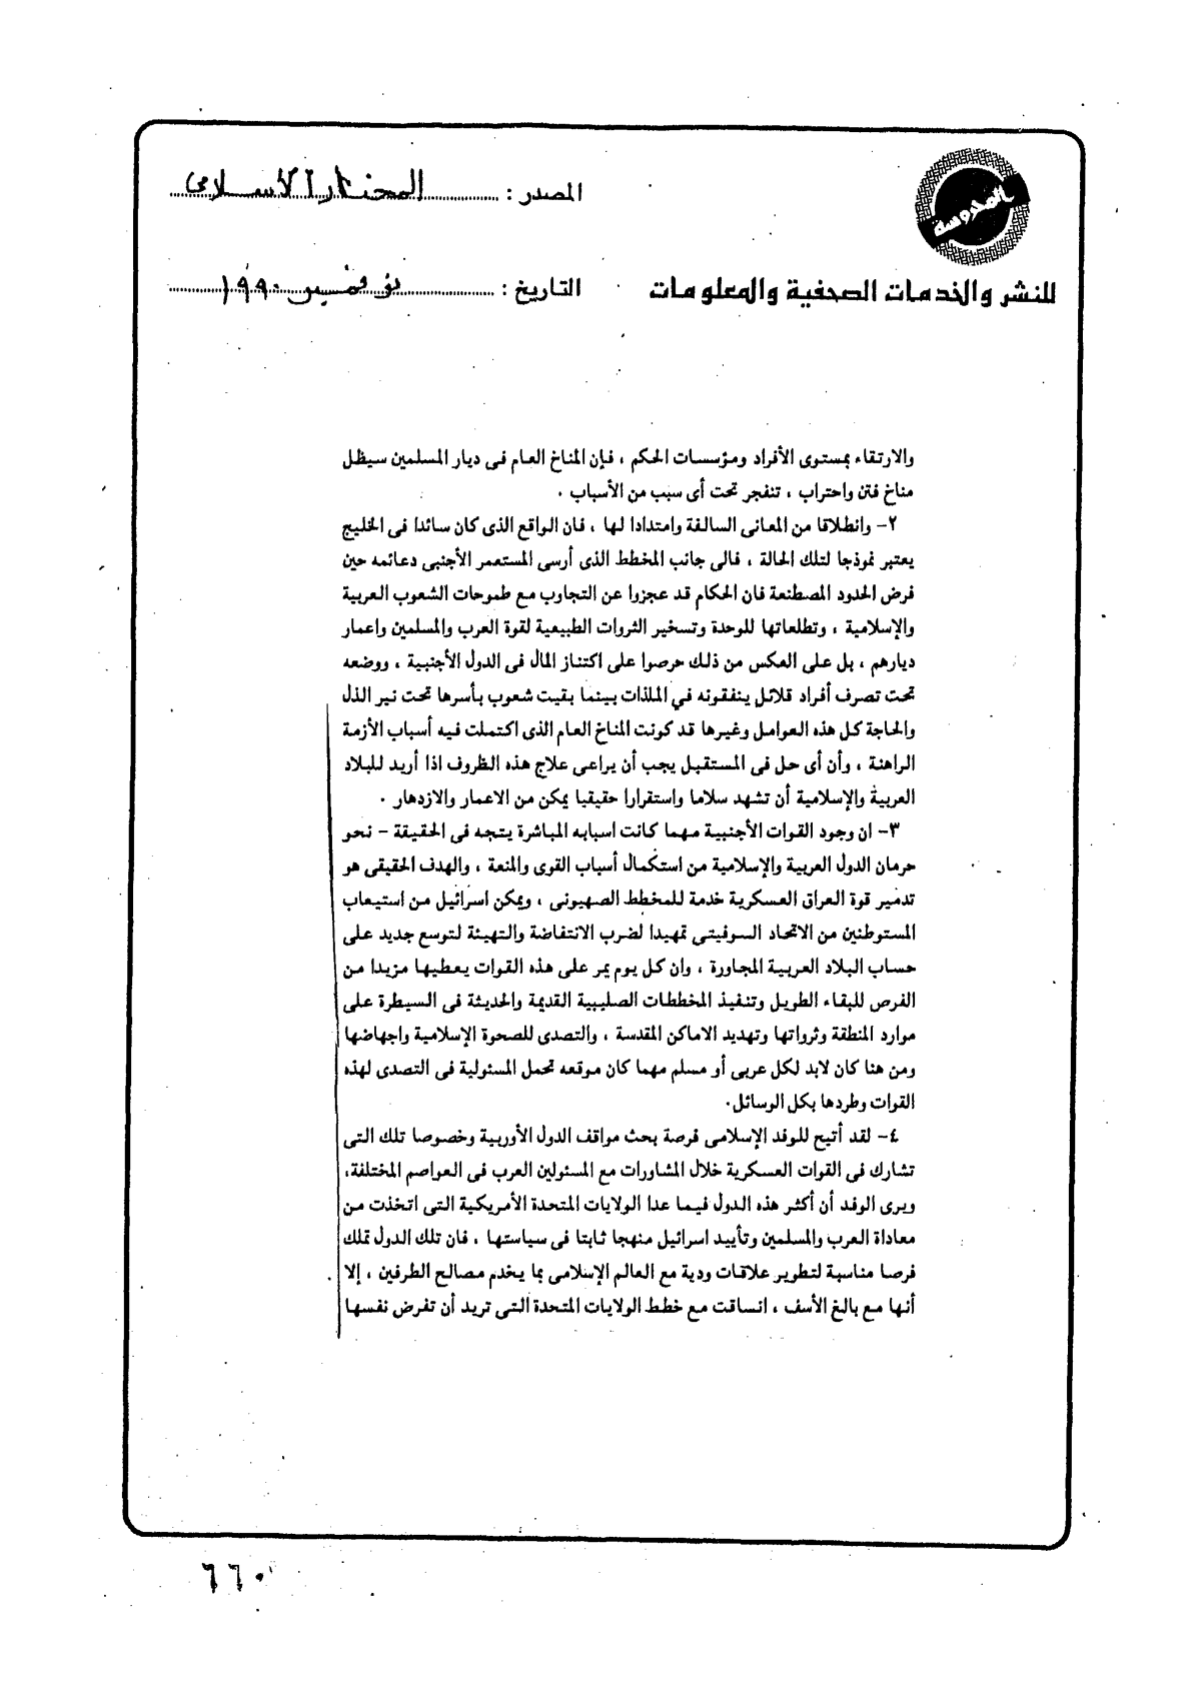 المحروسة
المصدر : المختار الأسلامى
للنشر والخدمات الصحفية والمعلومات
التاريخ : نوفمبر ١٩٩٠
والارتقاء بمستوى الأفراد ومؤسسات الحكم ، فإن المناخ العام فى ديار المسلمين سيظل
مناخ فتن واحتراب ، تنفجر تحت أى سبب من الأسباب .
٢- وانطلاقا من المعانى السالفة وامتدادا لها ، فان الواقع الذى كان سائدا فى الخليج
يعتبر نموذجا لتلك الحالة ، فالى جانب المخطط الذى أرسى المستعمر الأجنبى دعائمه حين
فرض الحدود المصطنعة فان الحكام قد عجزوا عن التجاوب مع طموحات الشعوب العربية
والإسلامية ، وتطلعاتها للوحدة وتسخير الثروات الطبيعية لقوة العرب والمسلمين واعمار
ديارهم ، بل على العكس من ذلك حرصوا على اكتناز المال فى الدول الأجنبية ، ووضعه
تحت تصرف أفراد قلائل ينفقونه في الملذات بينما بقيت شعوب بأسرها تحت نير الذل
والحاجة كل هذه العوامل وغيرها قد كونت المناخ العام الذى اكتملت فيه أسباب الأزمة
الراهنة ، وأن أى حل فى المستقبل يجب أن يراعى علاج هذه الظروف اذا أريد للبلاد
العربية والإسلامية أن تشهد سلاما واستقرارا حقيقيا يمكن من الاعمار والازدهار .
٣- ان وجود القوات الأجنبية مهما كانت اسبابه المباشرة يتجه فى الحقيقة - نحو
حرمان الدول العربية والإسلامية من استكمال أسباب القوى والمنعة ، والهدف الحقيقى هو
تدمير قوة العراق العسكرية خدمة للمخطط الصهيونى ، ويمكن اسرائيل من استيعاب
المستوطنين من الاتحاد السوفيتى تمهيدا لضرب الانتفاضة والتهيئة لتوسع جديد على
حساب البلاد العربية المجاورة ، وان كل يوم يمر على هذه القوات يعطيها مزيدا من
الفرص للبقاء الطويل وتنفيذ المخططات الصليبية القديمة والحديثة فى السيطرة على
موارد المنطقة وثرواتها وتهديد الاماكن المقدسة ، والتصدى للصحوة الإسلامية واجهاضها
ومن هنا كان لابد لكل عربى أو مسلم مهما كان موقعه تحمل المسئولية فى التصدى لهذه
القوات وطردها بكل الوسائل.
٤- لقد أتيح للوفد الإسلامى فرصة بحث مواقف الدول الأوربية وخصوصا تلك التى
تشارك فى القوات العسكرية خلال المشاورات مع المسئولين العرب فى العواصم المختلفة،
ويرى الوفد أن أكثر هذه الدول فيما عدا الولايات المتحدة الأمريكية التى اتخذت من
معاداة العرب والمسلمين وتأييد اسرائيل منهجا ثابتا فى سياستها ، فان تلك الدول تملك
فرصا مناسبة لتطوير علاقات ودية مع العالم الإسلامى بما يخدم مصالح الطرفين ، إلا
أنها مع بالغ الأسف ، انساقت مع خطط الولايات المتحدة التى تريد أن تفرض نفسها
٦٦٠